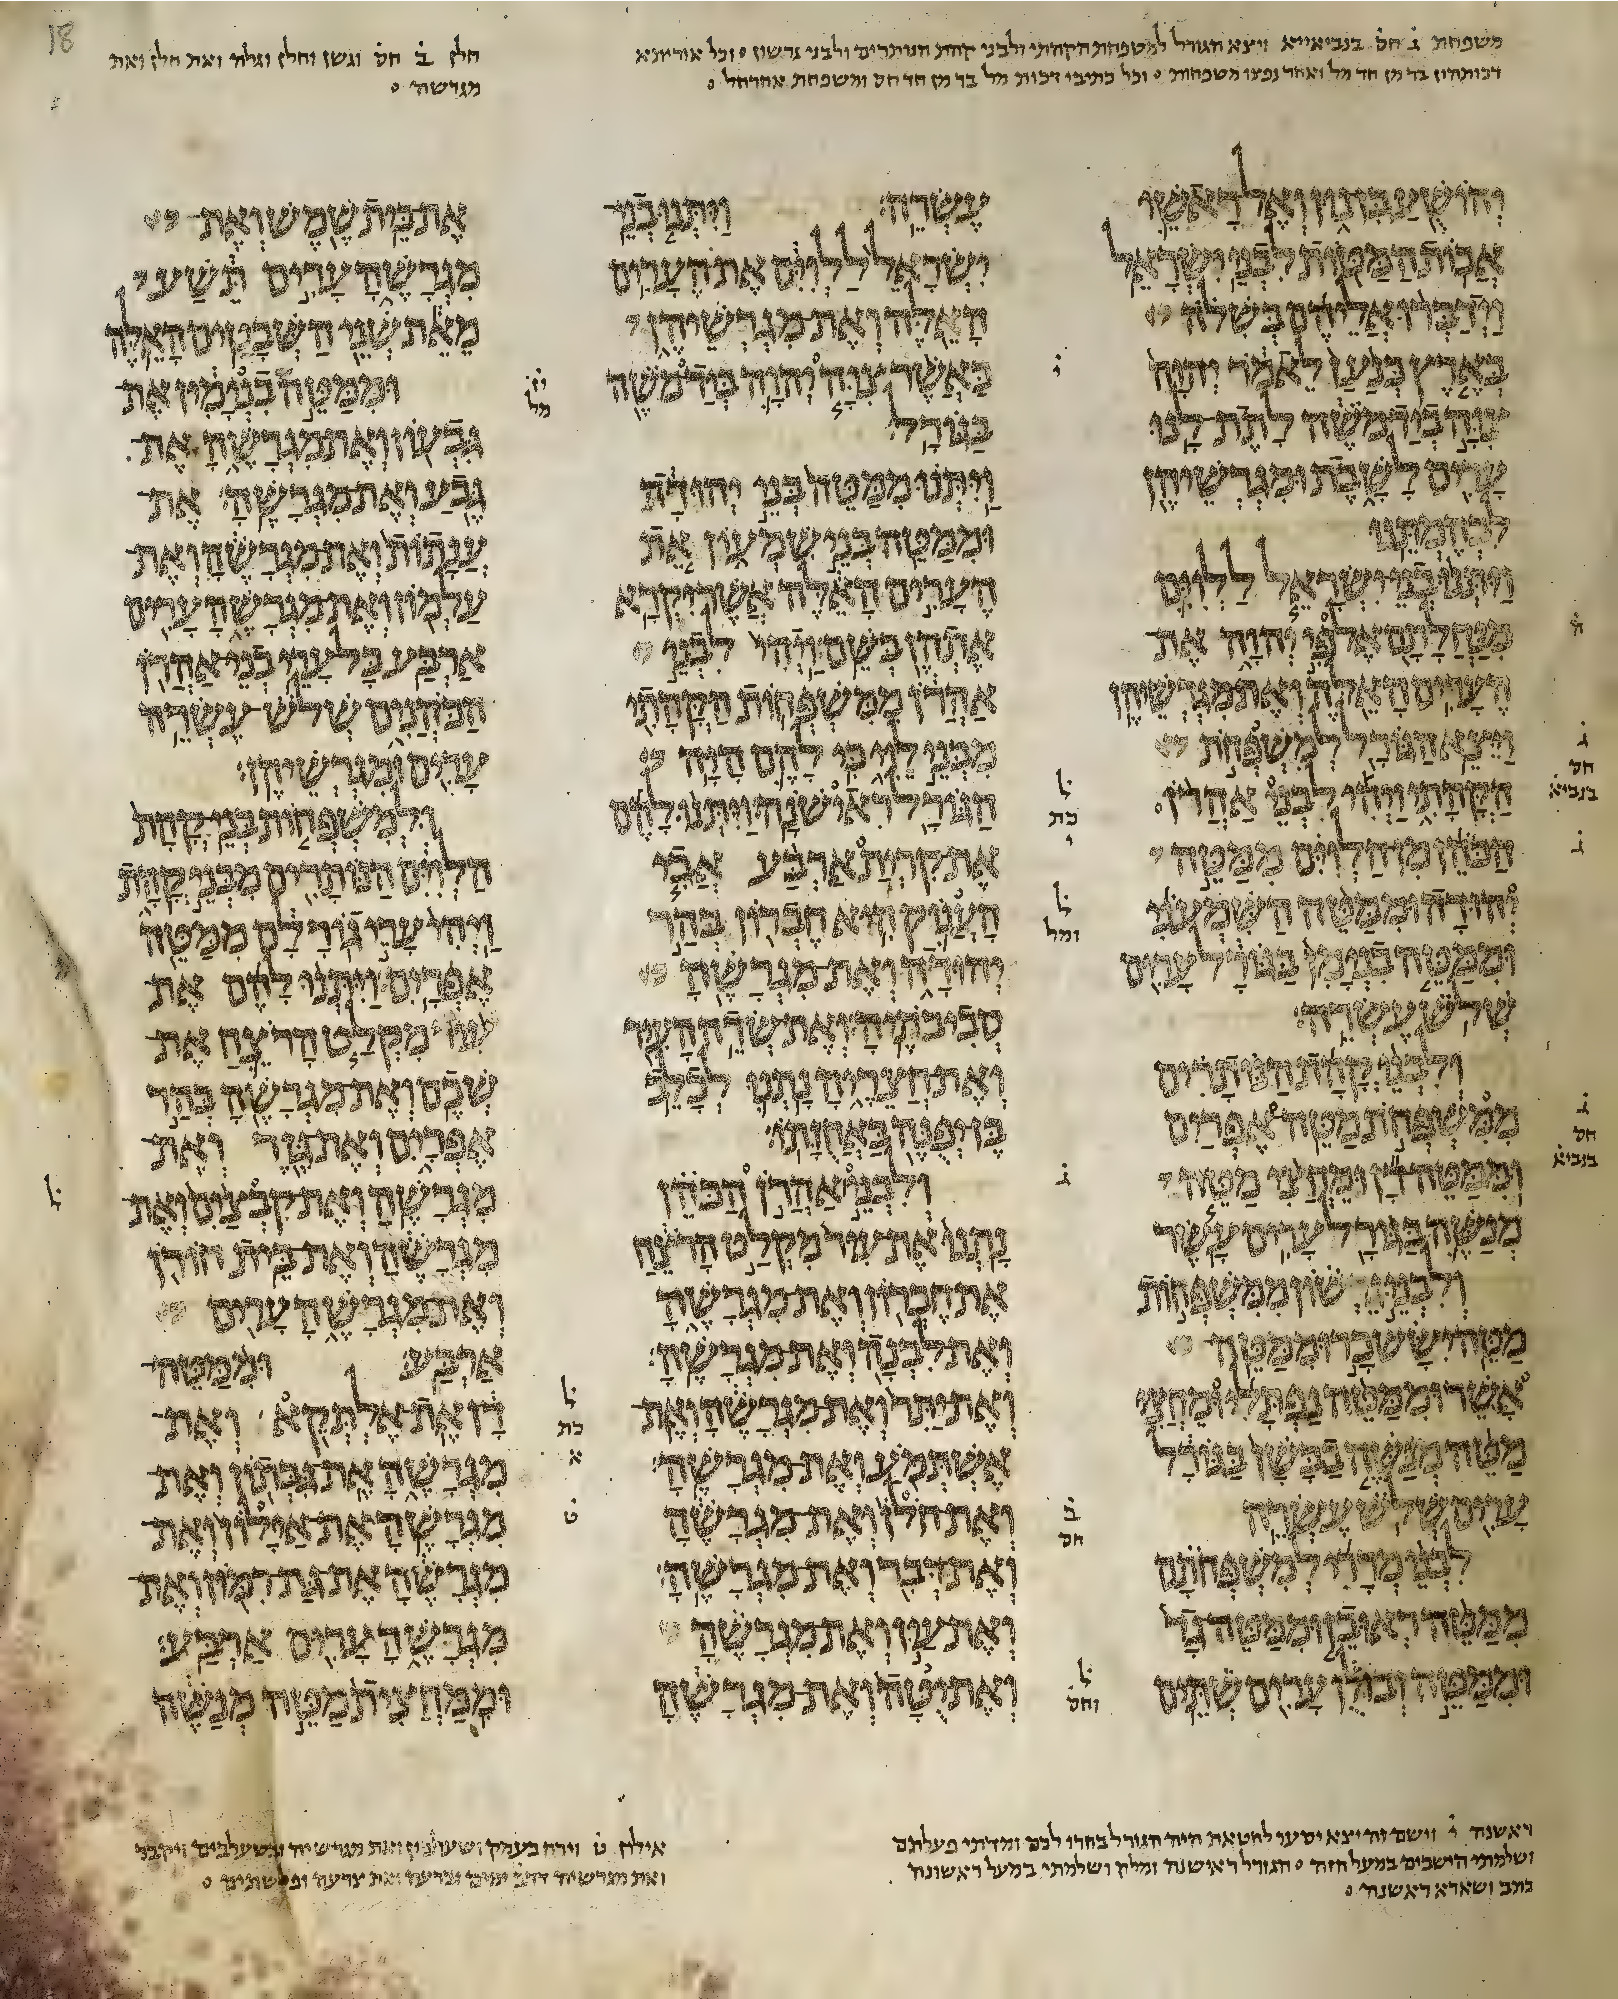 משפחת ג חס בנביאייא ויצא הגורל למשפחת הקהתי ולבני קהת הנותרים ולבני גרשון וכל אוריתא
דכותהון בר מן חד מל ואחד נפצו משפחות וכל כתיבי דכות מל בר מן חד חס ומשפחת אחרחל
חלן ב חס וגשן וחלן וגלה ואת חלן ואת
מגרשה
ויהושע בן נון ואל ראשי
אבות המטות לבני ישראל
וידברו אליהם בשלה
בארץ כנען לאמר יהוה
צוה ביד משה לתת לנו
ערים לשבת ומגרשיהן
לבהמתנו
ויתנו בני ישראל ללוים
מנחלתם אל פי יהוה את
הערים האלה ואת מגרשיהן
ויצא הגורל למשפחת
הקהתי ויהי לבני אהרן
הכהן מן הלוים ממטה
יהודה וממטה השמעני
וממטה בנימן בגורל ערים
שלש עשרה
ולבני קהת הנותרים
ממשפחת מטה אפרים
וממטה דן ומחצי מטה
מנשה בגורל ערים עשר
ולבני גרשון ממשפחות
מטה יששכר וממטה
אשר וממטה נפתלי ומחצי
מטה מנשה בבשן בגורל
ערים שלש עשרה
לבני מררי למשפחתם
ממטה ראובן וממטה גד
וממטה זבולן ערים שתים
ה
ג
חס
בנביא
ג
ג
חס
בנביא
עשרה ויתנו בני
ישראל ללוים את הערים
האלה ואת מגרשיהן
כאשר צוה יהוה ביד משה
בגורל
ויתנו ממטה בני יהודה
וממטה בני שמעון את
הערים האלה אשר יקרא
אתהן בשם ויהי לבני
אהרן ממשפחות הקהתי
מבני לוי כי להם היה
הגורל ראישנה ויתנו להם
את קרית ארבע אבי
הענוק היא חברון בהר
יהודה ואת מגרשה
סביבתיה ואת שדה העיר
ואת חצריה נתנו לכלב
בן יפנה באחזתו
ולבני אהרן הכהן
נתנו את עיר מקלט הרצח
את חברון ואת מגרשה
ואת לבנה ואת מגרשה
ואת יתר ואת מגרשה ואת
אשתמע ואת מגרשה
ואת חלן ואת מגרשה
ואת דבר ואת מגרשה
ואת עין ואת מגרשה
ואת יטה ואת מגרשה
י
ל
כת
י
ל
ומל
ג
ב
חס
ל
וחס
את בית שמש ואת
מגרשה ערים תשע
מאת שני השבטים האלה
וממטה בנימין את
גבעון ואת מגרשה את
גבע ואת מגרשה את
ענתות ואת מגרשה ואת
עלמון ואת מגרשה ערים
ארבע כל ערי בני אהרן
הכהנים שלש עשרה
ערים ומגרשיהן
ולמשפחות בני קהת
הלוים הנותרים מבני קהת
ויהי ערי גורלם ממטה
אפרים ויתנו להם את
עיר מקלט הרצח את
שכם ואת מגרשה בהר
אפרים ואת גזר ואת
מגרשה ואת קבצים ואת
מגרשה ואת בית חורן
ואת מגרשה ערים
ארבע וממטה
דן את אלתקא ואת
מגרשה את גבתון ואת
מגרשה את אילון ואת
מגרשה את גת רמון ואת
מגרשה ערים ארבע
וממחצית מטה מנשה
מל
ל
כת
א
ט
ל
ראשנה י וישם זה יצא יסערו לחטאת היה הגורל בחרו לכם ומדתי פעלתם
ושלמתי הישבים במעל הזה הגורל ראישנה ומלון ושלמתי במעל ראשונה
כתב ושארא ראשנה
אילון ט וירח בעמק ושעלבין ואת מגרשיה ובשעלבים ויקבר
ואת מגרשיה ואת צרעה ופלשתים